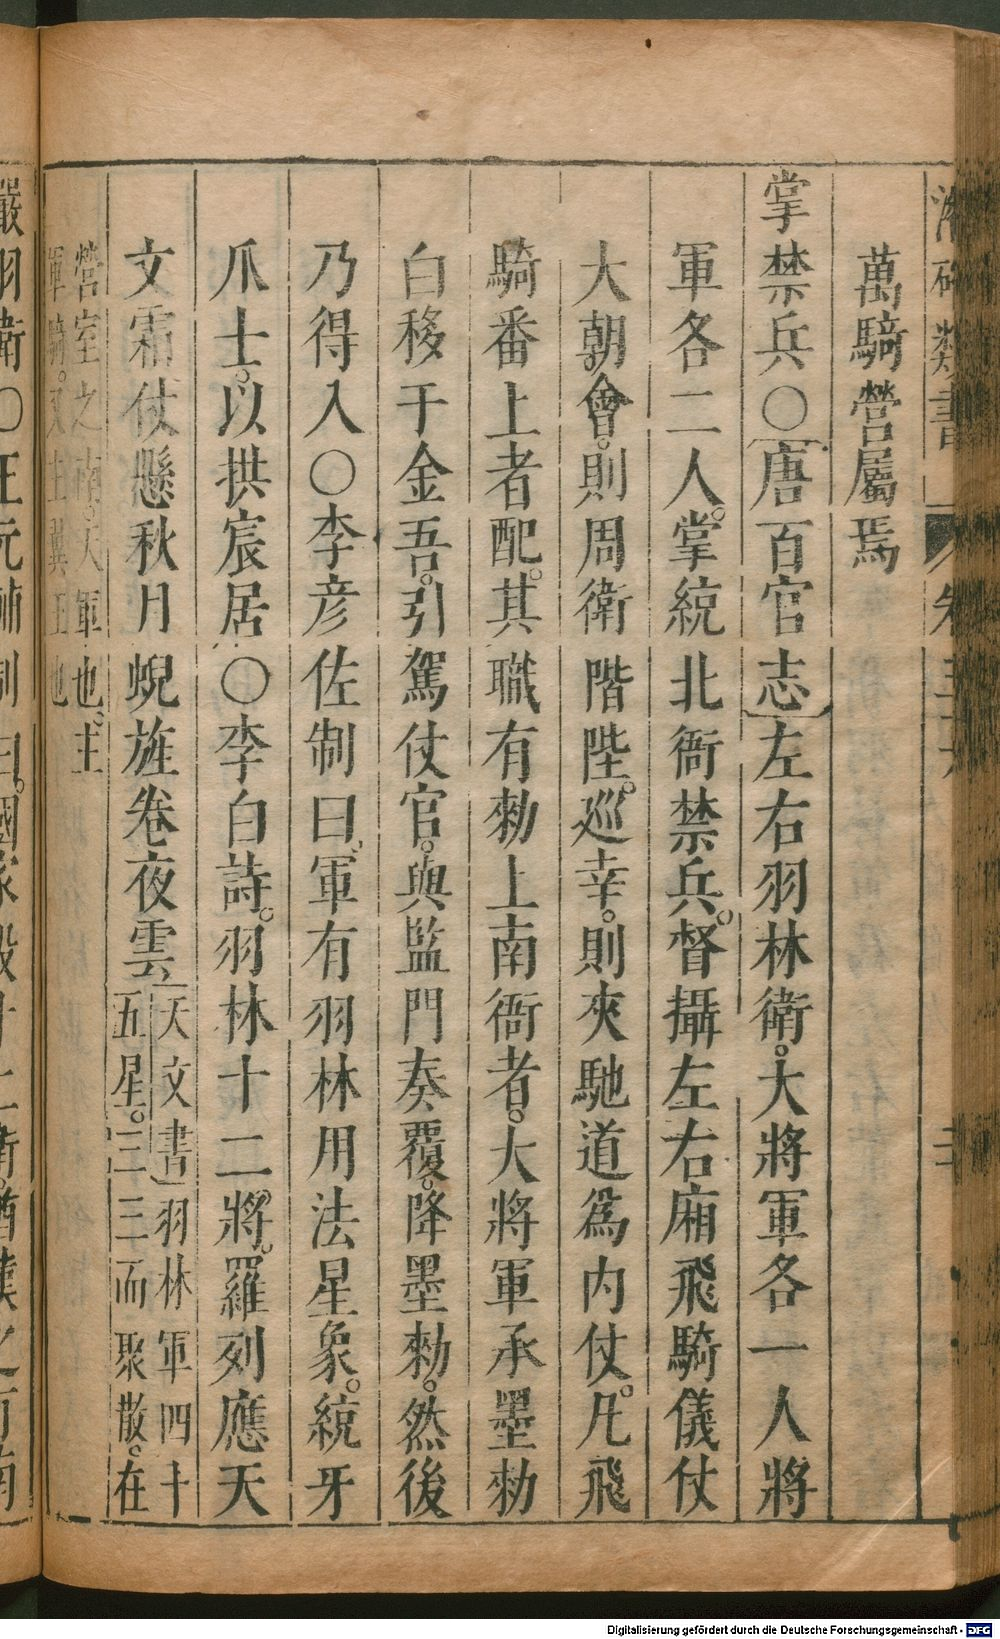 潛確類書 卷三十六 二十
萬騎營屬焉
掌禁兵〇唐百官志左右羽林衛。大將軍各一人將
軍各二人。掌統北衙禁兵。督攝左右廂飛騎儀仗
大朝會。則周衛階陛。巡幸。則夾馳道爲內仗。凡飛
騎番上者配。其職有勑上南衙者。大將軍承墨勑
白移于金吾。引駕仗官。與監門奏覆。降墨勑。然後
乃得入〇李彦佐制曰、軍有羽林用法星象。統牙
爪士。以拱宸居〇李白詩。羽林十二將。羅列應天
文霜仗懸秋月蜺旌卷夜雲
天文書羽林軍四十
五星。三三而聚散。在
營室之南。天軍也。主
軍騎。又主翼王也
嚴羽衛〇王元
制曰。國家設十二衛。猶漢之有南
Digitalisierung gefördert durch die Deutsche Forschungsgemeinschaft - DFG